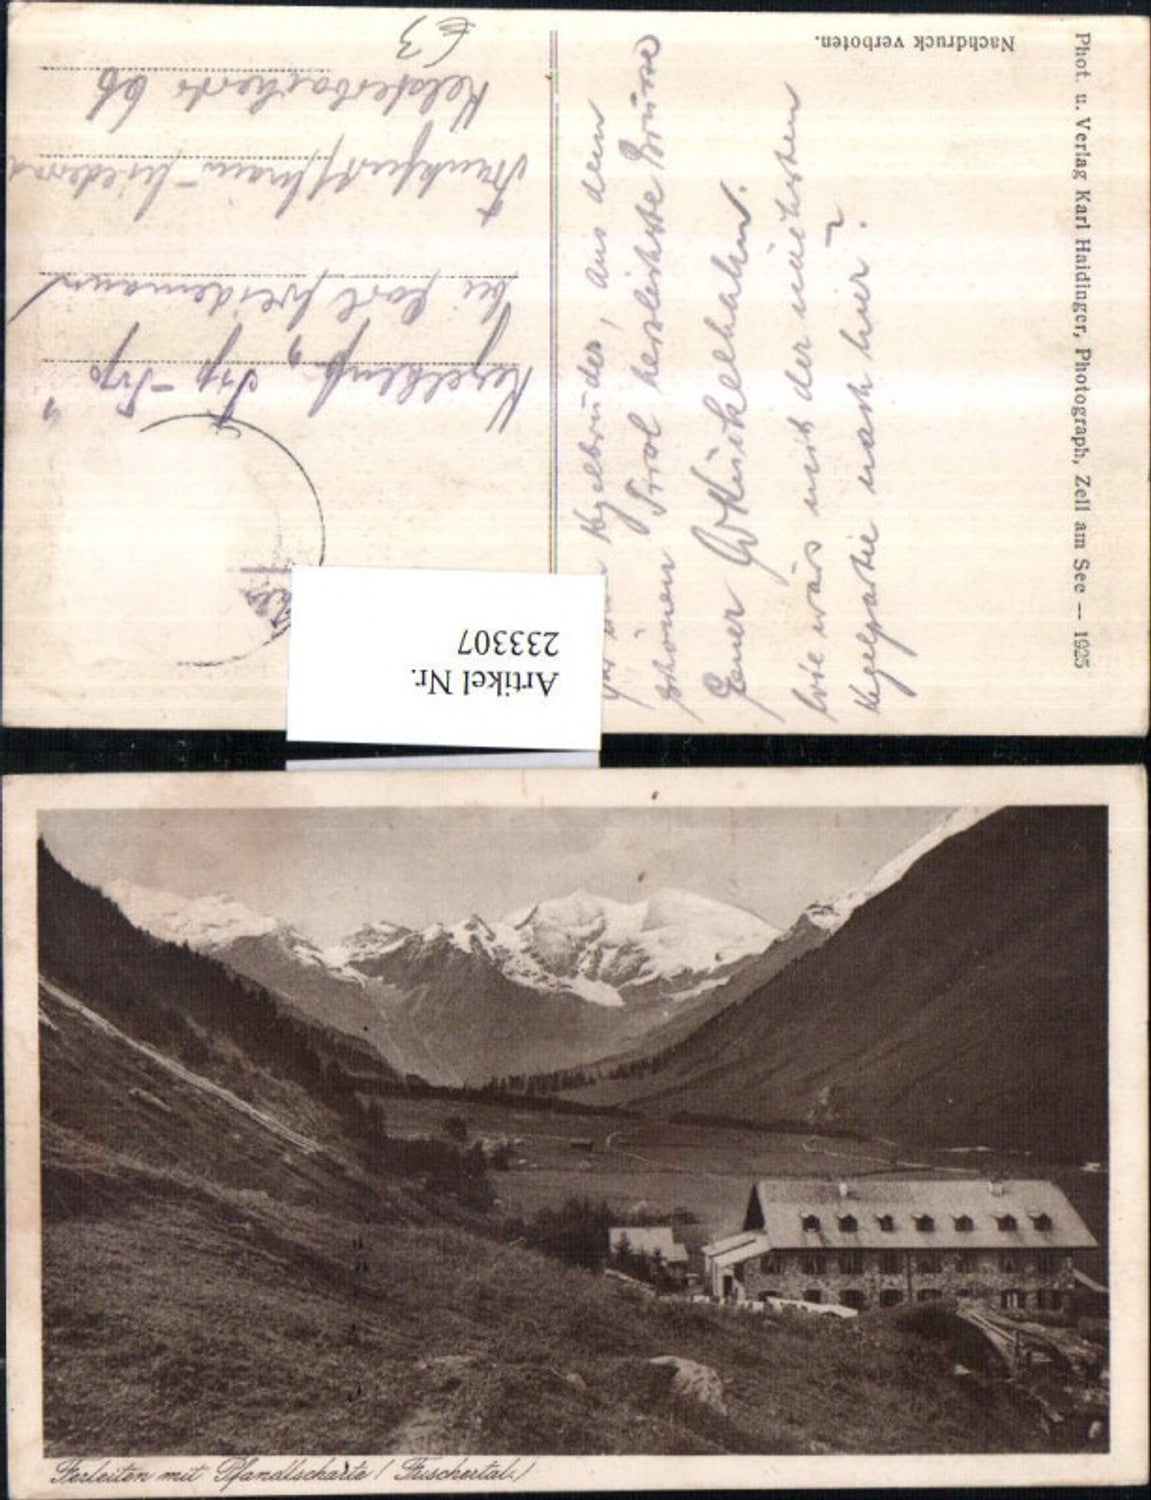 Nachdruck verboten.
Phot. u. Verlag Karl Haidinger, Photograph, Zell am See — 1925
Kegelbrüder, aus dem
schönen Tirol herzlichste Grüsse
Euer
Wie wärs mit der nächsten
Kegelpartie nach hier?
Kegelklub
bei Karl Weidemann
Frankfurt/Main-Niederrad
Kelsterbacherstr 66
63
Artikel Nr.
233307
Ferleiten mit Pfandlscharte (Fuschertal.)